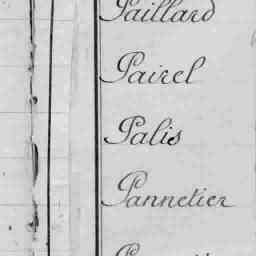 Paillard
Pairel
Palis
Pannetier